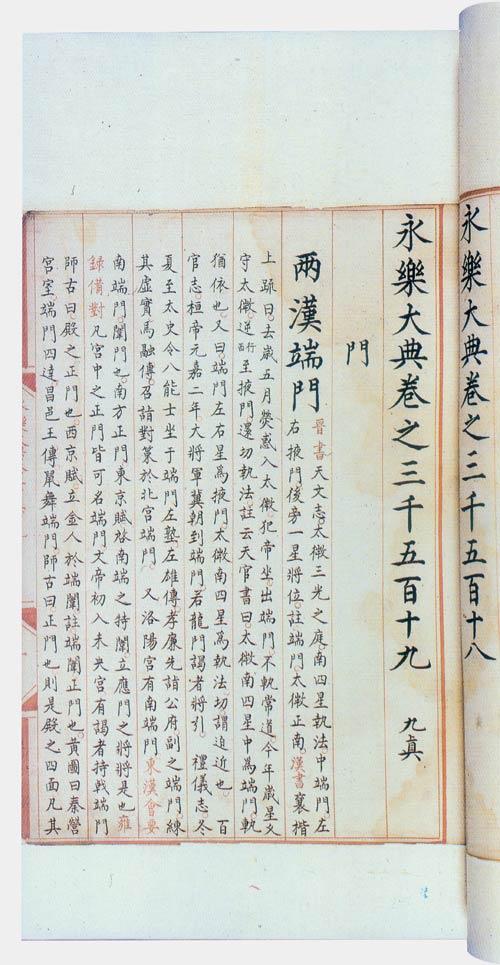 永樂大典卷之三千五百十八
永樂大典卷之三千五百十九 九真
門
兩漢端門
晉書天文志太微三光之庭南四星執法中端門左
右掖門後旁一星將位註端門太微正南漢書襄楷
上疏曰去歲五月熒惑入太微犯帝坐出端門不軌常道今年歲星久
守太微逆行西至掖門還切執法註云天官書曰太微南四星中為端門軌
猶依也又曰端門左右星為掖門太微南四星為執法切謂迫近也 百
官志桓帝元嘉二年大將軍冀朝到端門若龍門謁者將引 禮儀志冬
夏至太史令八能士坐于端門左塾左雄傳孝廉先詣公府副之端門練
其虛實馬融傳召詣對策於北宮端門 又洛陽宮有南端門東漢會要
南端門闈門也南方正門東京賦啟南端之特闈立應門之將將是也雍
錄備對凡宮中之正門皆可名端門文帝初入未央宮有謁者持戟端門
師古曰殿之正門也西京賦立金人於端闈註端闈正門也黃圖曰秦營
宮室端門四達昌邑王傳舞端門師古曰正門也則是殿之四面凡其